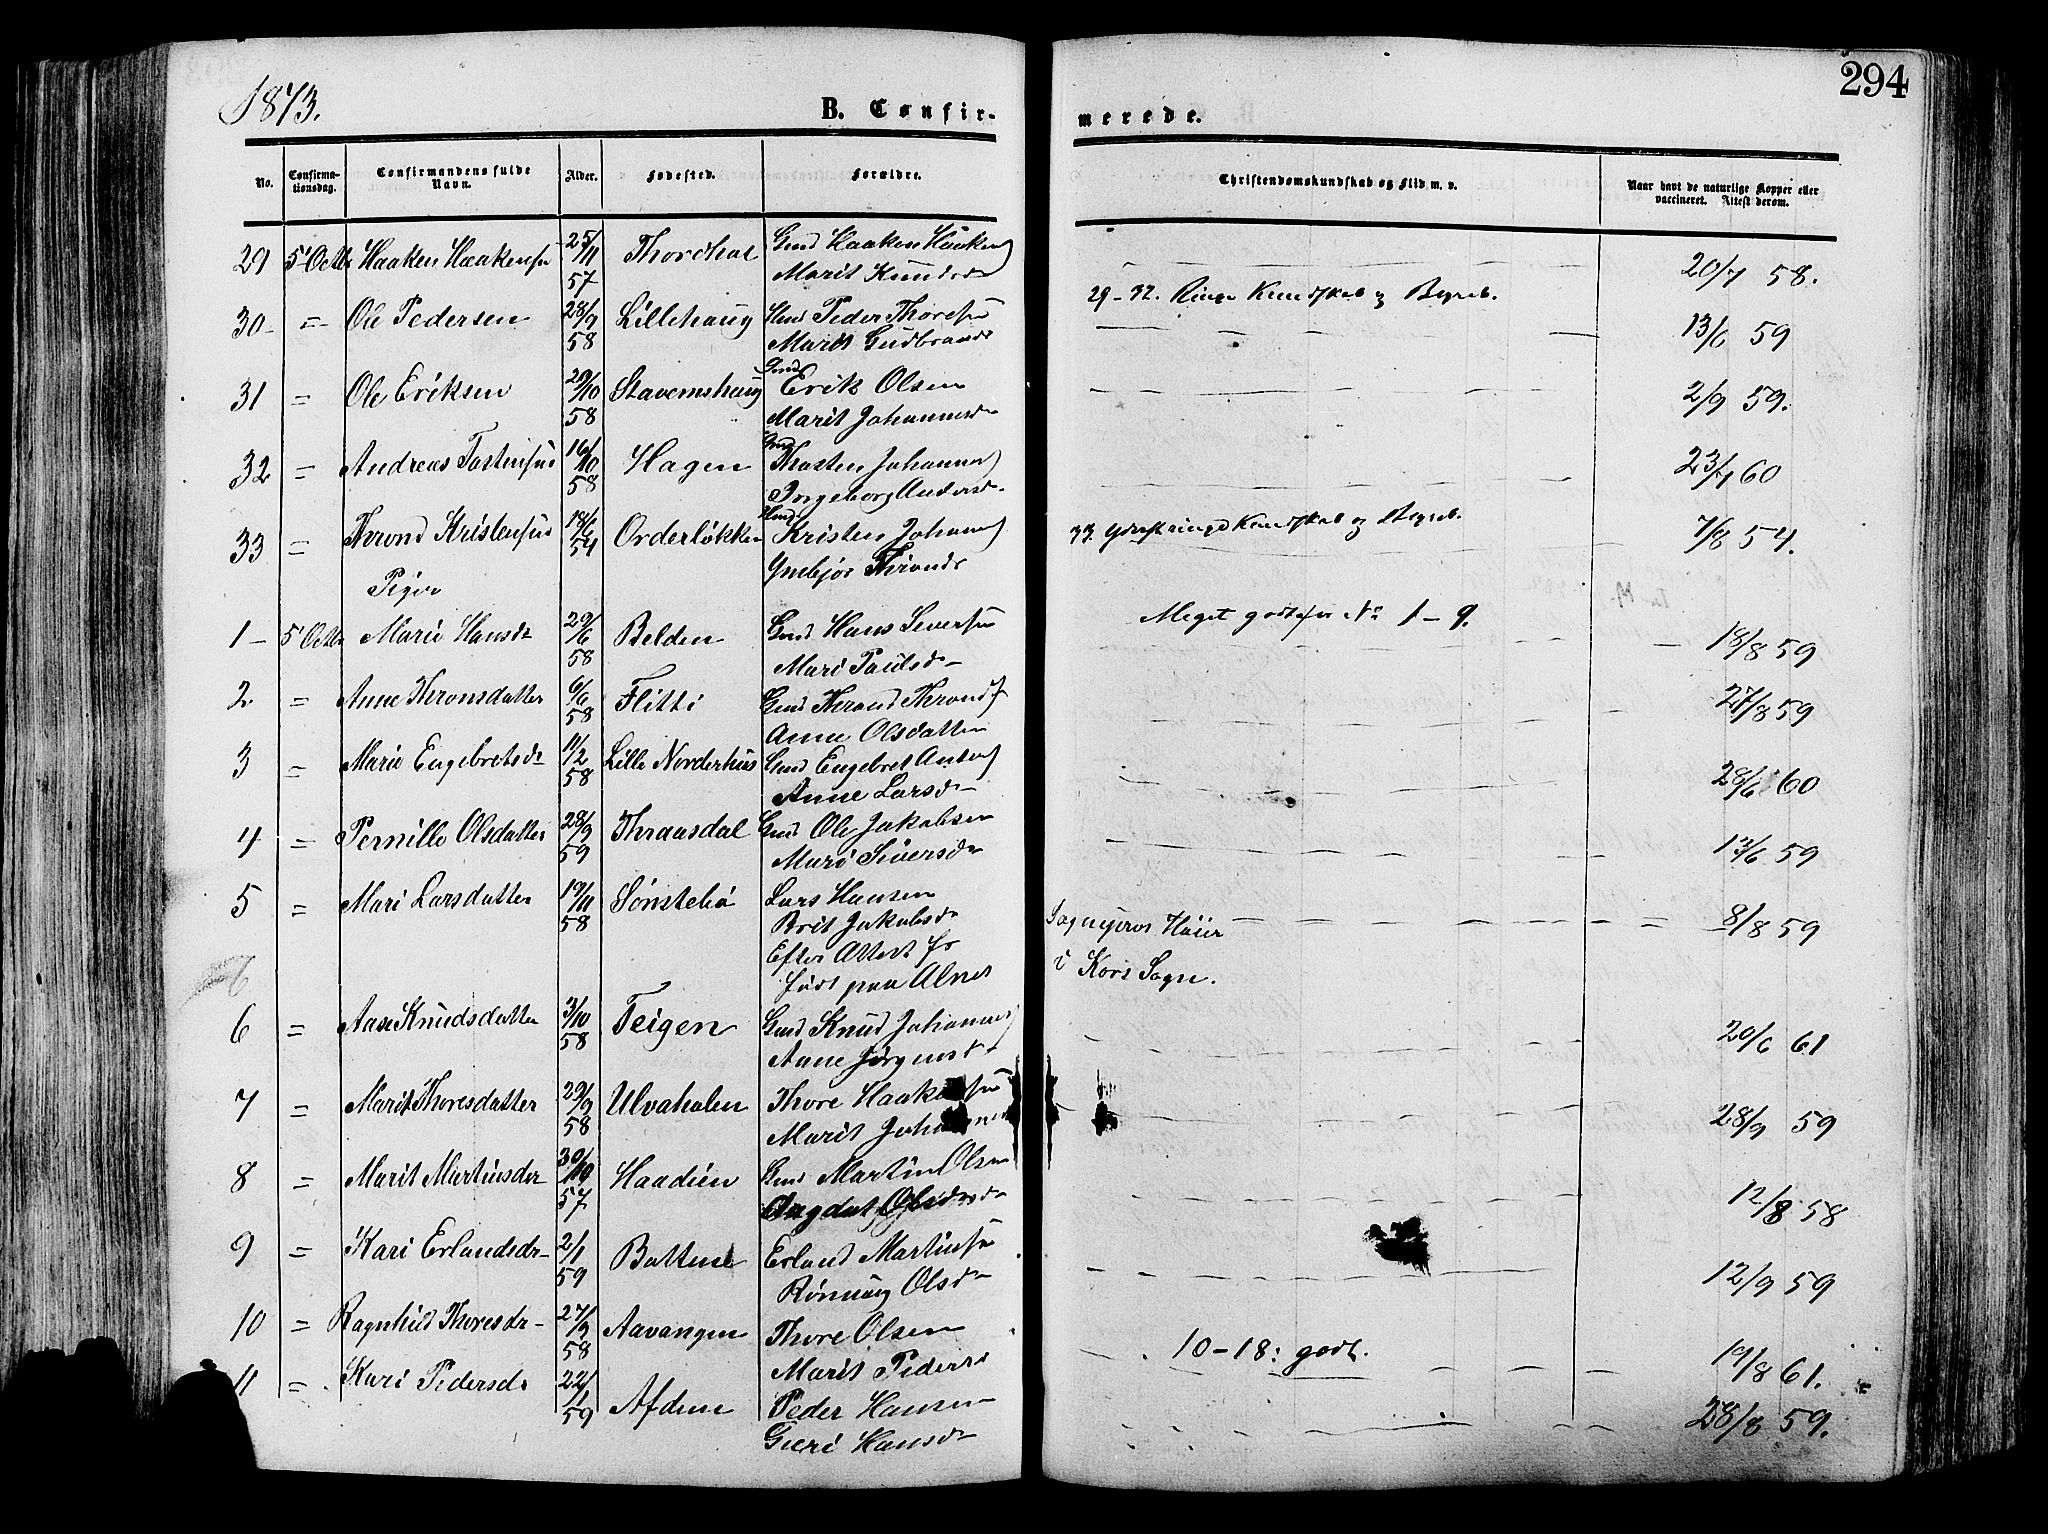 1873.
B. Confir-
merede.
294
No.
Confirma-
tionsdag.
Confirmandens fulde
Navn.
Alder.
Fødested.
Forældre.
Christendomskundskab og Flid m. v.
Naar havt de naturlige Kopper eller
vaccineret. Attest derom.
29 5 Octbr Haaken Haakensen 25/11 57 Thordhol Gmd Haaken Haakens
Marit Knudsd 20/7 58.
29-32. Ringe Kundskab og Begreb.
30 = Ole Pedersen 28/9 58 Lillehaug Hmd Peder Thoresen
Marit Gudbrands 13/6 59
31 = Ole Eriksen 29/10 58 Stavemshaug Gmd Erik Olsen
Marit Johannesd 2/9 59.
32 = Andreas Tostensen 16/10 58 Hagen Gmd Thosten Johannes
Ingeborg Andersd 60
33 = Thrond Kristensen 18/6 54 Orderløkken Hmd Kristen Johans
Throndsd 7/8 54.
33. Yderst ringe Kundskab og Begreb.
Piger
1 - 5 Octbr Marie Hansd 29/6 58 Belden Gmd Hans Siversen
Mari Paulsd 18/8 59
Meget godt for No 1-9.
2 = Anne Thronsdatter 6/6 58 Flitti Gmd Thrond Throndf
Anne Olsdatter 27/8 59
3 = Marie Engebretsd 11/2 58 Lille Norderhus Gmd Engebret Anders
Anne Larsd 28/6 60
4 = Pernille Olsdatter 28/9 59 Thraasdal Gmd Ole Jakobsen
Mari Siversd 13/6 59
5 = Mari Larsdatter 19/11 58 Sønstebø Lars Hansen
Brit Jakobsd
Efter Attest fr
født paa Alnes
Sognepræst Høier
i Kors Sogn.
8/8 59
6 = Aase Knudsdatter 3/10 58 Teigen Gmd Knud Johannes
Anne Jørgensd 20/6 61
7 = Marit Thoresdatter 29/9 58 Ulvahalen Thore Haakensen
Marit 28/9 59
8 = Marit Martinsdr 30/10 57 Haadien Gmd Martin Olsen
12/8 58
9 = Kari Erlandsdr 2/1 59 Battne Erland Martinsen
Rønnaug Olsd 12/9 59
10 = Ragnhild Thoresdr 27/9 58 Aavangen Thore Olsen
Marit Pedersd 19/8 61.
10-18: godt.
11 = Kari Pedersd 22/1 59 Afdem Peder Hansen
Guri Hansd 28/8 59.